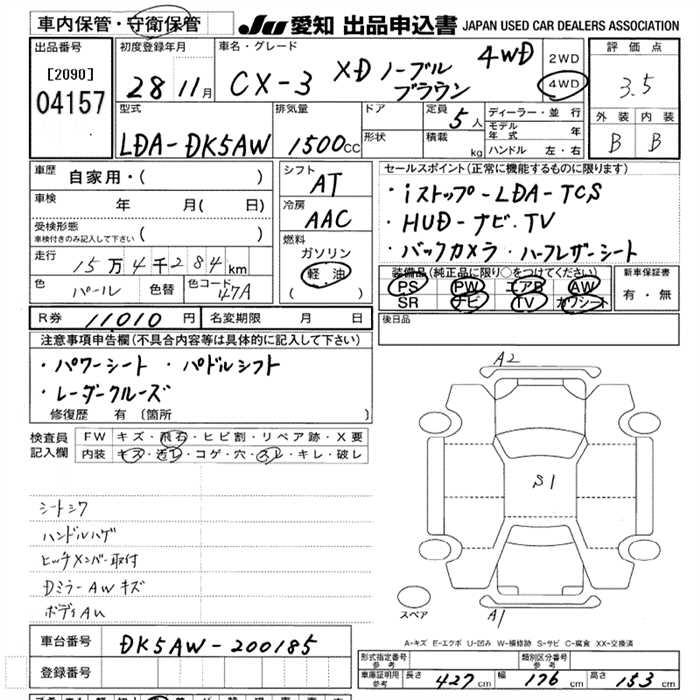 車内保管・守衛保管
JU 愛知 出品申込書 JAPAN USED CAR DEALERS ASSOCIATION
出品番号
[2090]
04157
初度登録年月
28 11月
車名・グレード
CX-3 XD ノーブル
ブラウン
4WD
2WD
4WD
評価点
3.5
外装 内装
B B
型式
LDA-DK5AW
排気量
1500cc
ドア
形状
定員
5人
積載
kg
ディーラー・並行
モデル年式 年
ハンドル 左・右
車歴
自家用・( )
車検
年 月( 日)
受検形態
車検付きのみ記入して下さい ( )
走行
15万4千284km
色
パール
色替
色コード
47A
シフト
AT
冷房
AAC
燃料
ガソリン
軽油
( )
セールスポイント(正常に機能するものに限ります)
・iストップ-LDA-TCS
・HUD-ナビ・TV
・バックカメラ・ハーフレザーシート
装備品(純正品に限り○をつけてください)
PS PW エアB AW
SR ナビ TV カワシート
新車保証書
有・無
R券 11010円
名変期限 月 日
後日品
注意事項申告欄(不具合内容等は具体的に記入して下さい)
・パワーシート ・パドルシフト
・レーダークルーズ
修復歴 有 〔箇所 〕
検査員
記入欄
FW キズ・飛石・ヒビ割・リペア跡・X要
内装 キズ・汚レ・コゲ・穴・スレ・キレ・破レ
シートシワ
ハンドルハゲ
ヒッチメンバー取付
Dミラー AWキズ
ボディAU
A2
S1
A1
スペア
A-キズ E-エクボ U-凹み W-補修跡 S-サビ C-腐食 XX-交換済
車台番号
DK5AW-200185
登録番号
型式指定番号
参考
類別区分番号
参考
車庫証明用
参考
長さ 427cm 幅 176cm 高さ 153cm